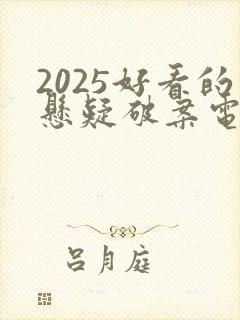 2025好看的
悬疑破案電
吕月庭